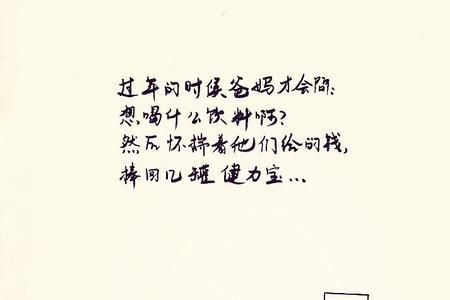 过年的时候爸妈才会问：
想喝什么饮料啊？
然后怀揣着他们给的钱，
捧回几罐健力宝...